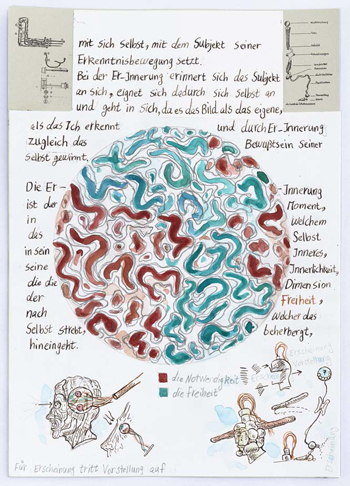 mit sich selbst, mit dem Subjekt seiner
Erkenntnisbewegung setzt.
Bei der Er-Innerung erinnert sich das Subjekt
an sich, eignet sich dadurch sich selbst an
und geht in sich, da es das Bild als das eigene,
als das Ich erkennt und durch Er-Innerung
zugleich das Bewußtsein seiner
selbst gewinnt.
Die Er- -Innerung
ist der Moment,
in welchem
das Selbst
in sein Inneres,
seine Innerlichkeit,
die die Dimension
der Freiheit,
nach welcher das
Selbst strebt, beherbergt,
hineingeht.
die Notwendigkeit
die Freiheit
Für Erscheinung tritt Vorstellung auf